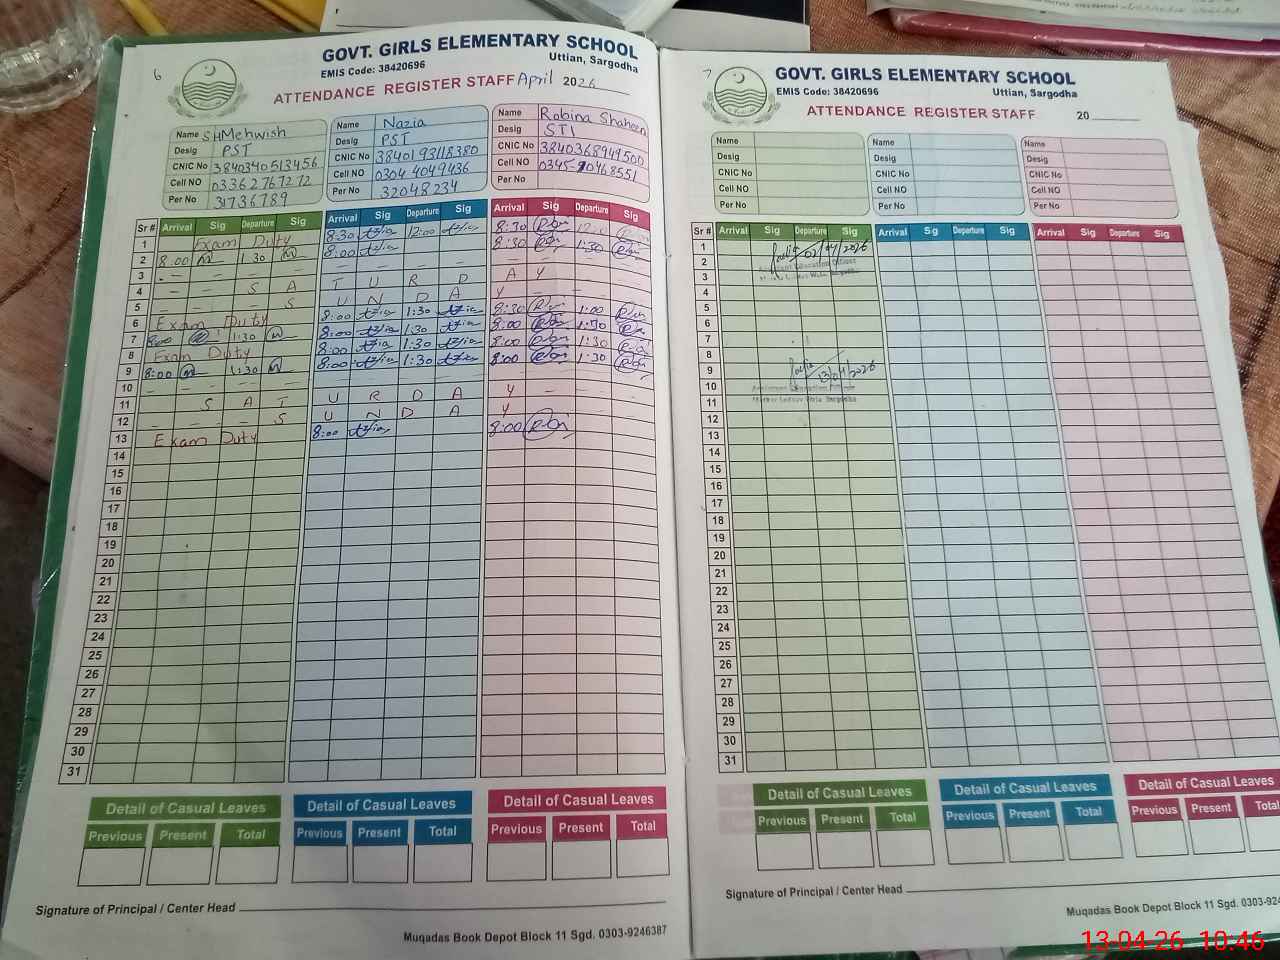 6
GOVT. GIRLS ELEMENTARY SCHOOL
EMIS Code: 38420696
Uttian, Sargodha
ATTENDANCE REGISTER STAFF April 2026
Name SHMehwish
Desig PST
CNIC No 3840340513456
Cell NO 03362767272
Per No 31736789
Name Nazia
Desig PST
CNIC No 3840193118380
Cell NO 0304 4049436
Per No 32048234
Name Robina Shaheen
Desig STI
CNIC No 3840368949500
Cell NO
Per No
Sr # Arrival Sig Departure Sig Arrival Sig Departure Sig Arrival Sig Departure Sig
1 Exam Duty 8:30 12:00 8:30
2 8:00 1:30 8:00 8:30 1:30
3 - - - -
4 - - S A T U R D A Y
5 - - - S U N D A Y - -
6 Exam Duty 8:00 1:30 8:30 1:00
7 8:00 1:30 8:00 1:30 8:00 1:30
8 Exam Duty 8:00 1:30 8:00 1:30
9 8:00 1:30 8:00 1:30 8:00 1:30
10 - - - -
11 S A T U R D A Y
12 - - - S U N D A Y
13 Exam Duty 8:00 8:00
14
15
16
17
18
19
20
21
22
23
24
25
26
27
28
29
30
31
Detail of Casual Leaves Detail of Casual Leaves Detail of Casual Leaves
Previous Present Total Previous Present Total Previous Present Total
Signature of Principal / Center Head
Muqadas Book Depot Block 11 Sgd. 0303-9246387
7
GOVT. GIRLS ELEMENTARY SCHOOL
EMIS Code: 38420696
Uttian, Sargodha
ATTENDANCE REGISTER STAFF 20
Name
Desig
CNIC No
Cell NO
Per No
Name
Desig
CNIC No
Cell NO
Per No
Name
Desig
CNIC No
Cell NO
Per No
Sr # Arrival Sig Departure Sig Arrival Sig Departure Sig Arrival Sig Departure Sig
1 02/04/2026
2 Assistant Education Officer
3
4
5
6
7
8
9 13/04/2026
10 Assistant Education Officer
11
12
13
14
15
16
17
18
19
20
21
22
23
24
25
26
27
28
29
30
31
Detail of Casual Leaves Detail of Casual Leaves Detail of Casual Leaves
Previous Present Total Previous Present Total Previous Present
Signature of Principal / Center Head
Muqadas Book Depot Block 11 Sgd. 0303-924
13-04-26 10:46